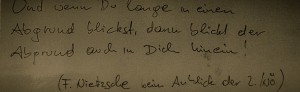 Und wenn Du lange in einen
Abgrund blickst, dann blickt der
Abgrund auch in Dich hinein!
(F. Nietzsche beim Anblick der 2.